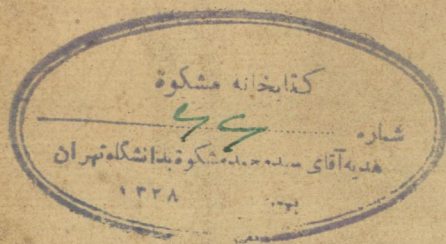 کتابخانه مشکوة
شماره
هدیه آقای سید محمد مشکوة بدانشگاه تهران
۱۳۲۸